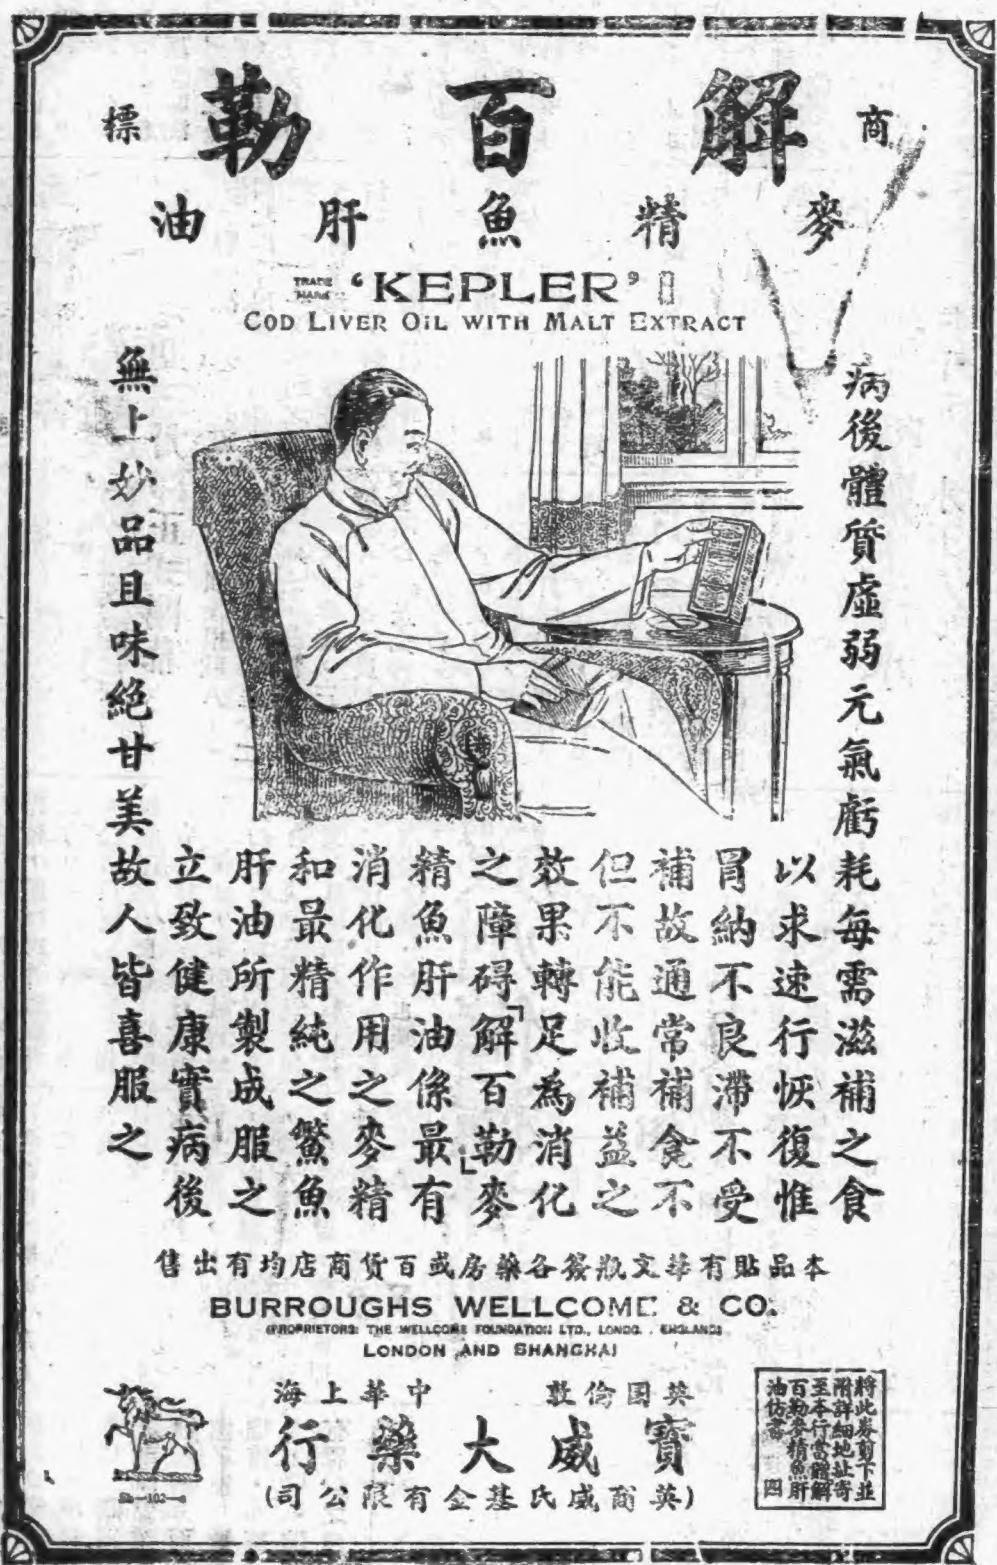 商 解百勒 標
麥精魚肝油
TRADE MARK 'KEPLER'
COD LIVER OIL WITH MALT EXTRACT
病後體質虛弱元氣虧耗每需滋補之食
以求速行恢復惟
胃納不良滯不受
補故通常補食不
但不能收補益之
效果轉足為消化
之障碍「解百勒」麥
精魚肝油係最有
消化作用之麥精
和最精純之鱉魚
肝油所製成服之
立致健康實病後
無上妙品且味絕甘美故人皆喜服之
本品貼有華文瓶簽各藥房或百貨商店均有出售
BURROUGHS WELLCOME & CO.
(PROPRIETORS: THE WELLCOME FOUNDATION LTD., LONDON, ENGLAND)
LONDON AND SHANGHAI
英国倫敦 中華上海
寶威大藥行
(英商威氏基金有限公司)
將此券剪下並
附詳細地址寄
至本行當贈解
百勒麥精魚肝
油仿單 四